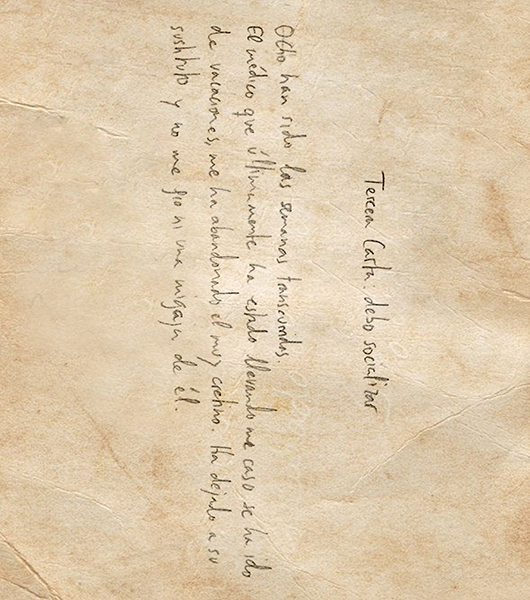 Tercera Carta: debo socializar
Ocho han sido las semanas transcurridas.
El médico que últimamente ha estado llevando me caso se ha ido
de vacaciones, me ha abandonado el muy cretino. Ha dejado a su
sustituto y no me fio ni una migaja de él.